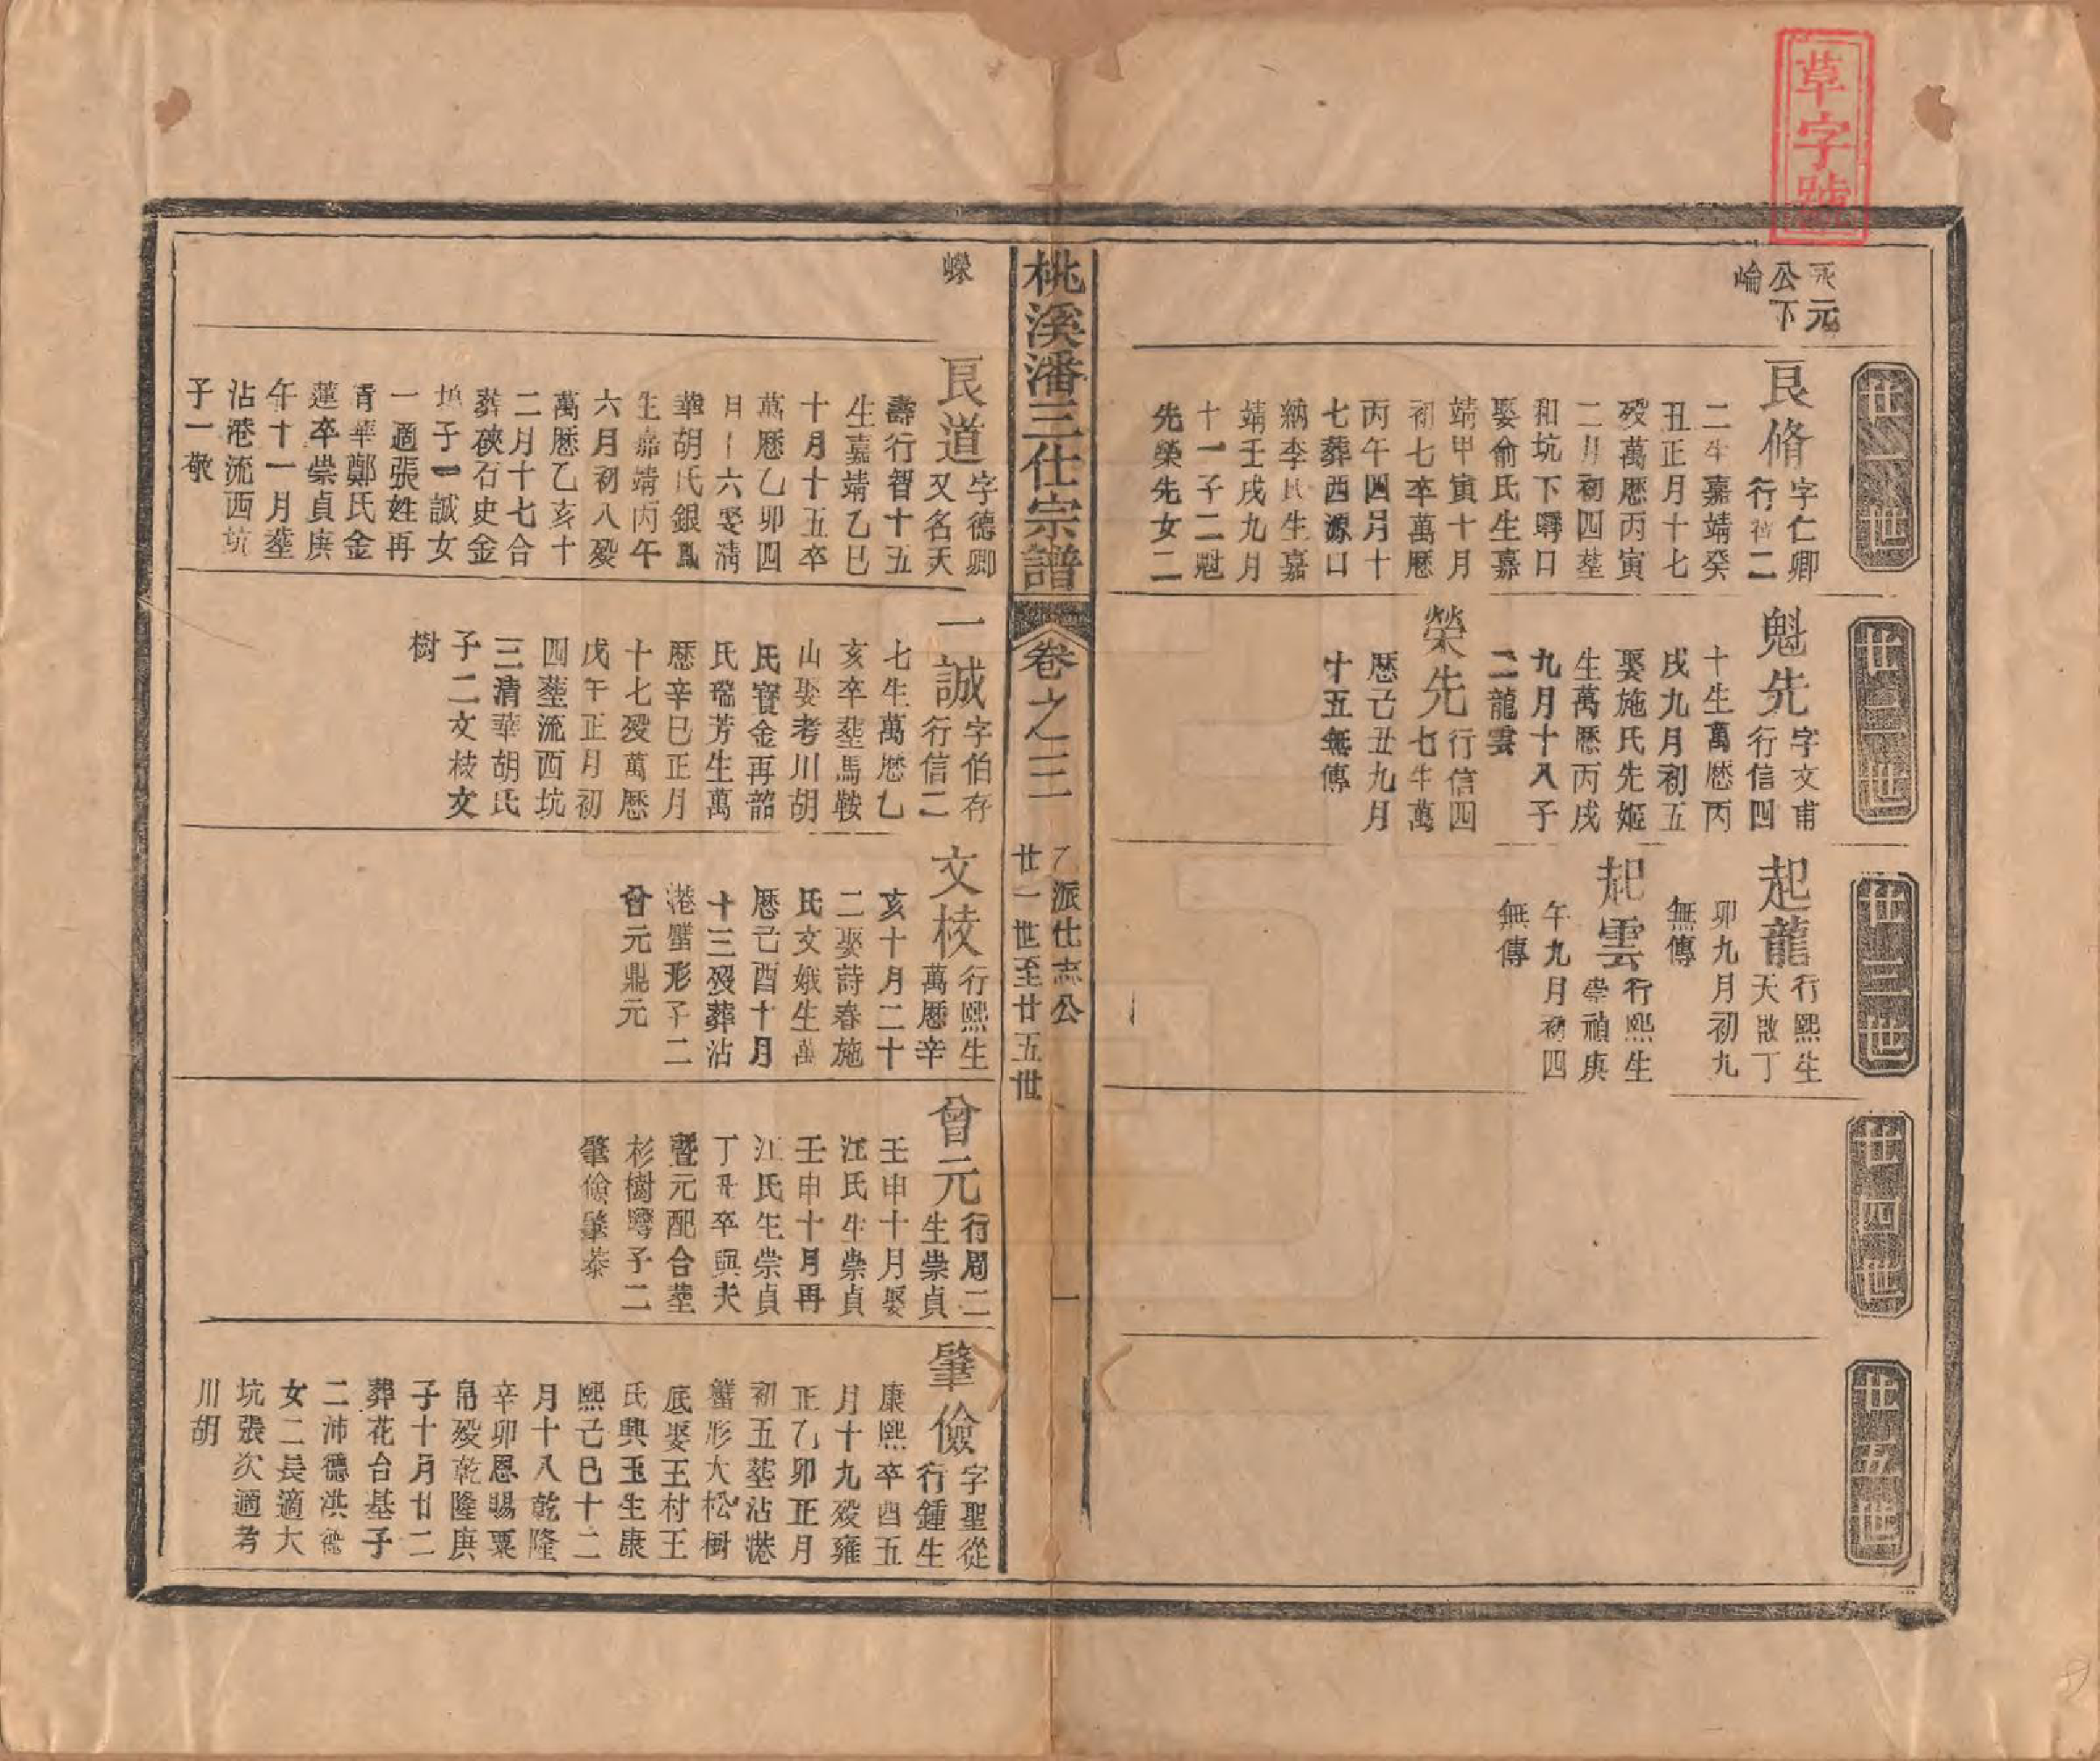 草字號
永元
公下
崙
廿一世
良脩
字仁卿
行智二
二生嘉靖癸
丑正月十七
歿萬歷丙寅
二月初四塟
和坑下塆口
娶俞氏生嘉
靖甲寅十月
初七卒萬歷
丙午四月十
七葬西源口
納李氏生嘉
靖壬戌九月
十一子二魁
先榮先女二
廿二世
魁先
字文甫
行信四
十生萬歷丙
戌九月初五
娶施氏先姬
生萬歷丙戌
九月十八子
二龍雲
榮先
行信四
七生萬
歷己丑九月
十五無傳
廿三世
起龍
行熙生
天啟丁
卯九月初九
無傳
起雲
行熙生
崇禎庚
午九月初四
無傳
廿四世
廿五世
桃溪潘三仕宗譜
卷之三
乙派仕志公
廿一世至廿五世
一
嶸
良道
字德卿
又名天
壽行智十五
生嘉靖乙巳
十月十五卒
萬歷乙卯四
月十六娶清
華胡氏銀鳳
生嘉靖丙午
六月初八歿
萬歷乙亥十
二月十七合
葬硤石史金
坵子一誠女
一適張姓再
青華鄭氏金
蓮卒崇貞庚
午十一月塟
沾港流西坑
子一敬
一誠
字伯存
行信二
七生萬歷乙
亥卒塟馬鞍
山娶考川胡
氏寳金再韶
氏瑞芳生萬
歷辛巳正月
十七歿萬歷
戊午正月初
四塟流西坑
三清華胡氏
子二文棱文
樹
文棱
行熙生
萬歷辛
亥十月二十
二娶詩春施
氏文娥生萬
歷己酉十月
十三歿葬沾
港蟹形子二
曾元鼎元
曾元
行周二
生崇貞
壬申十月娶
江氏生崇貞
壬申十月再
江氏生崇貞
丁丑卒與夫
暨元配合塟
杉樹塆子二
肇儉肇泰
肇儉
字聖從
行鍾生
康熙卒酉五
月十九歿雍
正乙卯正月
初五塟沾港
蟹形大松樹
底娶王村王
氏興玉生康
熙己巳十二
月十八乾隆
辛卯恩賜粟
帛歿乾隆庚
子十月廿二
葬花台基子
二沛德洪德
女二長適大
坑張次適考
川胡